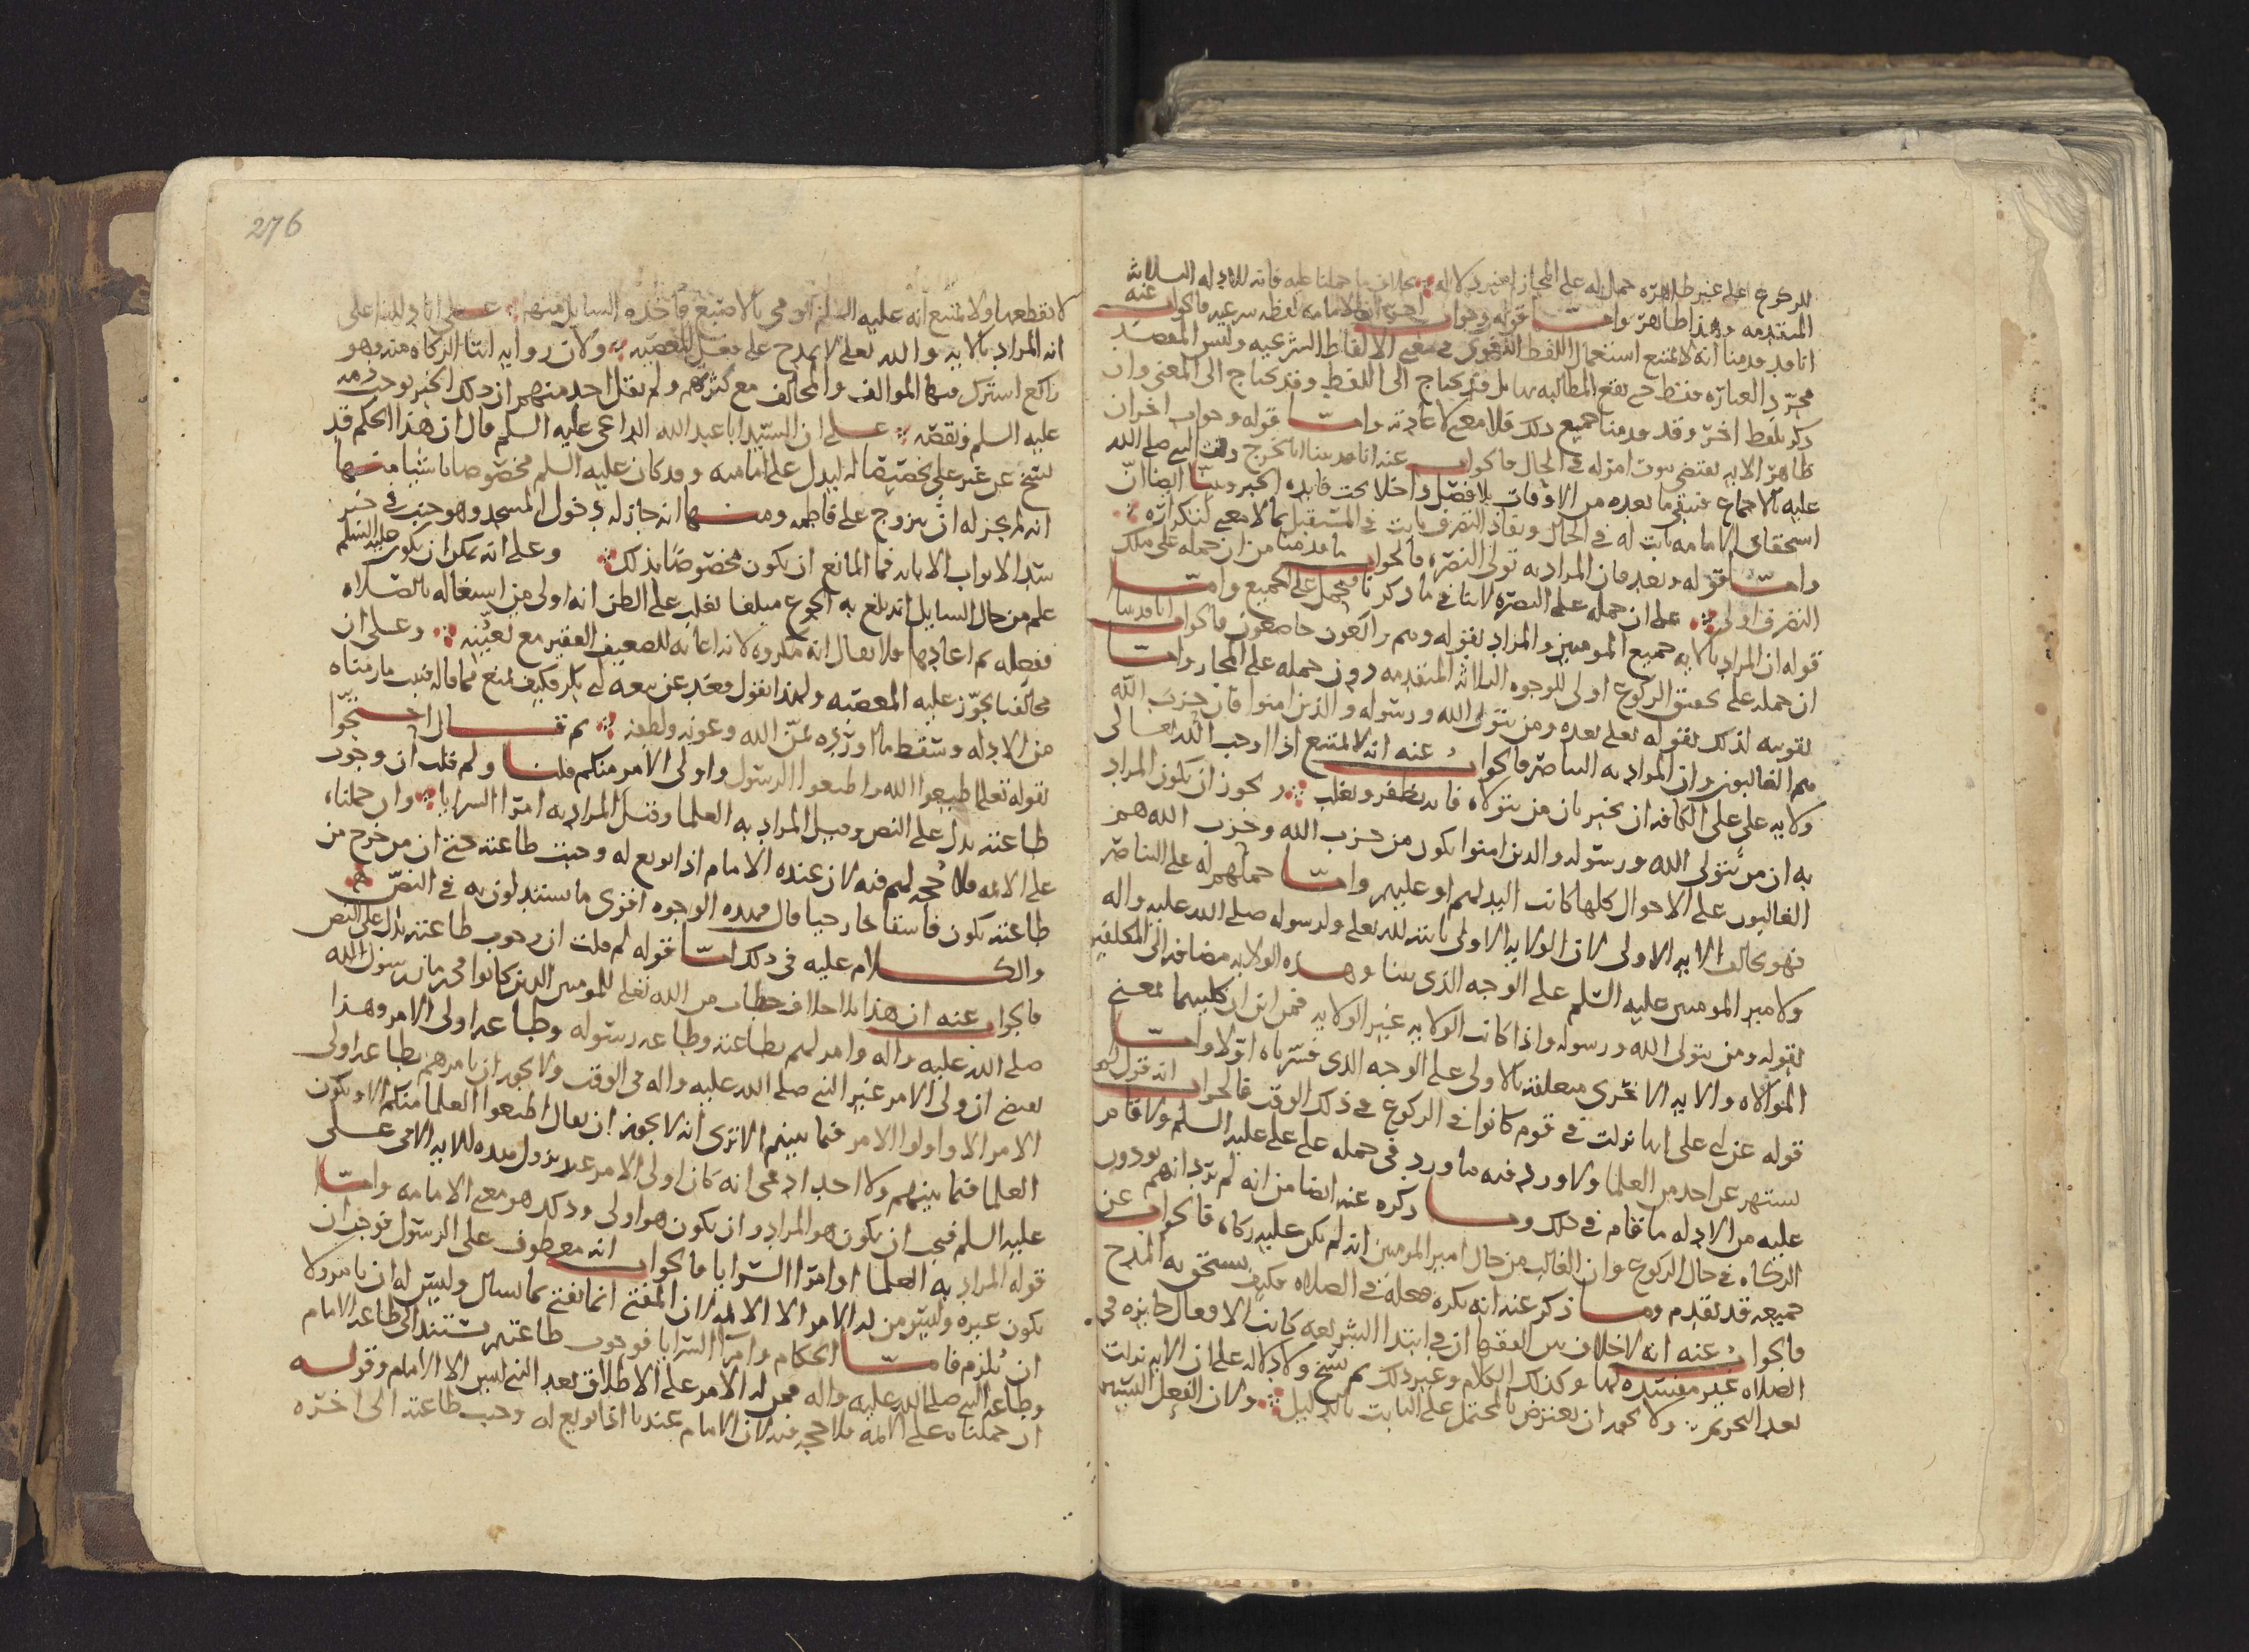 للركوع على غير ظاهره حمل له على المجاز بغير دلاله بخلاف ما حملنا عليه فانه للادله الثلاثه
المتقدمه وهذا ظاهر واما قوله وجواب اخر ان الامامه لفظه شرعيه فالجواب عنه
انا قد قدمنا انه لا يمتنع استعمال اللفظ اللغوي في معنى الالفاظ الشرعيه وليس المقصد
مجرد العباره فقط حتى تقع المطالبه بها بل قد يحتاج الى اللفظ وقد يحتاج الى المعنى وان
ذكر بلفظ اخر وقد قدمنا جميع ذلك فلا معنى لاعادته واما قوله وجواب اخر ان
ظاهر الايه يقتضي ثبوت امر له في الحال فالجواب عنه انا قد بينا انا نخرج وقت النبي صلى الله
عليه بالاجماع فيبقى ما بعده من الاوقات بلا فصل والا خلا تحت فايده الخبر وبينا ايضا ان
استحقاق الامامه ثابت له في الحال ونفاذ التصرف ثابت في المستقبل بما لا معنى لتكراره
واما قوله وبعد فان المراد به تولي النصره فالجواب ما قدمنا من ان حمله على ملك
التصرف اولى على ان حمله على النصره لا ينافي ما ذكرنا فيحمل على الجميع واما
قوله ان المراد بالايه جميع المومنين والمراد بقوله وهم راكعون خاضعون فالجواب انا قد بينا
ان حمله على تحقيق الركوع اولى للوجوه الثلاثه المتقدمه دون حمله على المجاز واما
تقويته لذلك بقوله تعلى بعده ومن يتولى الله ورسوله والذين امنوا فان حزب الله
هم الغالبون وان المراد به الناصر فالجواب عنه انه لا يمتنع اذا اوجب الله تعالى
ولايه علي على الكافه ان يخبر بان من يتولاه فانه يظفر ويغلب ويجوز ان يكون المراد
به ان من يتولى الله ورسوله والذين امنوا يكون من حزب الله وحزب الله هم
الغالبون على الاحوال كلها كانت اليد لهم او عليهم واما حملهم له على الناصر
فهو يخالف الايه الاولى لان الولايه الاولى ثابته لله تعلى ولرسوله صلى الله عليه واله
ولامير المومنين عليه السلم على الوجه الذي بينا وهذه الولايه مضافه الى المكلفين
بقوله ومن يتولى الله ورسوله واذا كانت الولايه غير الولايه فمن اين ان كليهما بمعنى
الموالاه والايه الاخرى متعلقه بالاولى على الوجه الذي فسرناه اولا واما
قوله عن ابي علي انها نزلت في قوم كانوا في الركوع في ذلك الوقت فالجواب انه قول لم
يشتهر عن احد من العلما ولا ورد فيه ما ورد في حمله على علي عليه السلم ولا قام
عليه من الادله ما قام في ذلك وما ذكره عنه ايضا من انه لم يرد انهم يودون
الزكاه في حال الركوع وان الغالب من حال امير المومنين انه لم يكن عليه زكاه فالجواب عن
جميعه قد تقدم وما ذكر عنه انه يكره فعله في الصلاه فكيف يستحق به المدح
فالجواب عنه انه لا خلاف بين الفقها ان في ابتدا الشريعه كانت الافعال جايزه في
الصلاه غير مفسده لها وكذلك الكلام وغير ذلك ثم نسخ ولا دلاله على ان الايه نزلت
بعد التحريم ولا يجوز ان يعترض بالمحتمل على الثابت بالدليل ولان الفعل اليسير
276
لا يقطعها ولا يمتنع انه عليه السلم اومى بالاصبع فاخذه السايل منها على انا دللنا على
انه المراد بالايه والله تعلى لا يمدح على فعل المعصيه ولان روايه ايتا الزكاه منه وهو
راكع اشترك فيها الموالف والمخالف مع كثرتهم ولم يقل احد منهم ان ذلك الخبر يوجب ذمه
عليه السلم ونقصه على ان السيد ابا عبد الله الداعي عليه السلم قال ان هذا الحكم قد
نسخ عن غير علي تخصيصا له ليدل على امامته وقد كان عليه السلم مخصوصا باشيا منها
انه لم يجز له ان يتزوج على فاطمه ومنها انه جاز له دخول المسجد وهو جنب في خبر
سد الابواب الا بابه فما المانع ان يكون مخصوصا بذلك وعلى انه يمكن ان يكون عليه السلم
علم من حال السايل انه بلغ به الجوع مبلغا يغلب على الظن انه اولى من اشتغاله بالصلاه
ففعله ثم اعادها فلا يقال انه مكروه لانه اغاثه للضعيف الفقير مع تعينه وعلى ان
مخالفنا يجوز عليه المعصيه ولهذا يقول فقعد عن بيعه ابي بكر فكيف يمتنع مما قاله فثبت ما رمناه
من الادله وسقط ما اورده بمن الله وعونه ولطفه ثم قال احتجوا
بقوله تعلى اطيعوا الله واطيعوا الرسول واولي الامر منكم قلنا ولم قلت ان وجوب
طاعته يدل على النص وقيل المراد به العلما وقيل المراد به امرا السرايا وان حملناه
على الائمه فلا حجه لهم فيه لان عنده الامام اذا بويع له وجبت طاعته حتى ان من خرج من
طاعته يكون فاسقا خارجيا قال فهذه الوجوه اقوى ما يستدلون به في النص
والكلام عليه في ذلك اما قوله لم قلت ان وجوب طاعته يدل على النص
فالجواب عنه ان هذا بلا خلاف خطاب من الله تعلى للمومنين الذين كانوا في زمان رسول الله
صلى الله عليه واله وامر لهم بطاعته وطاعه رسوله وطاعه اولي الامر وهذا
يقتضي ان ولي الامر غير النبي صلى الله عليه واله في الوقت ولا يجوز ان يامرهم بطاعه اولي
الامر الا واولوا الامر فيما بينهم الا ترى انه لا يجوز ان يقال اطيعوا العلما منكم الا ويكون
العلما فيما بينهم ولا احد ادعي انه كان اولي الامر عند نزول هذه الايه الا في علي
عليه السلم فيجب ان يكون هو المراد وان يكون هو اولى وذلك هو معنى الامامه واما
قوله المراد به العلما او امرا السرايا فالجواب انه معطوف على الرسول فوجب ان
يكون غيره وليس من له الامر الا الائمه لان المفتي انما يفتي بما يسال وليس له ان يامر ولا
ان يلزم فاما الحكام وامرا السرايا فوجوب طاعتهم تستند الى طاعه الامام
وطاعه النبي صلى الله عليه واله فمن له الامر على الاطلاق بعد النبي ليس الا الامام وقوله
ان حملناه على الائمه فلا حجه فيه لان الامام عندنا اذا بويع له وجب طاعته الى اخره